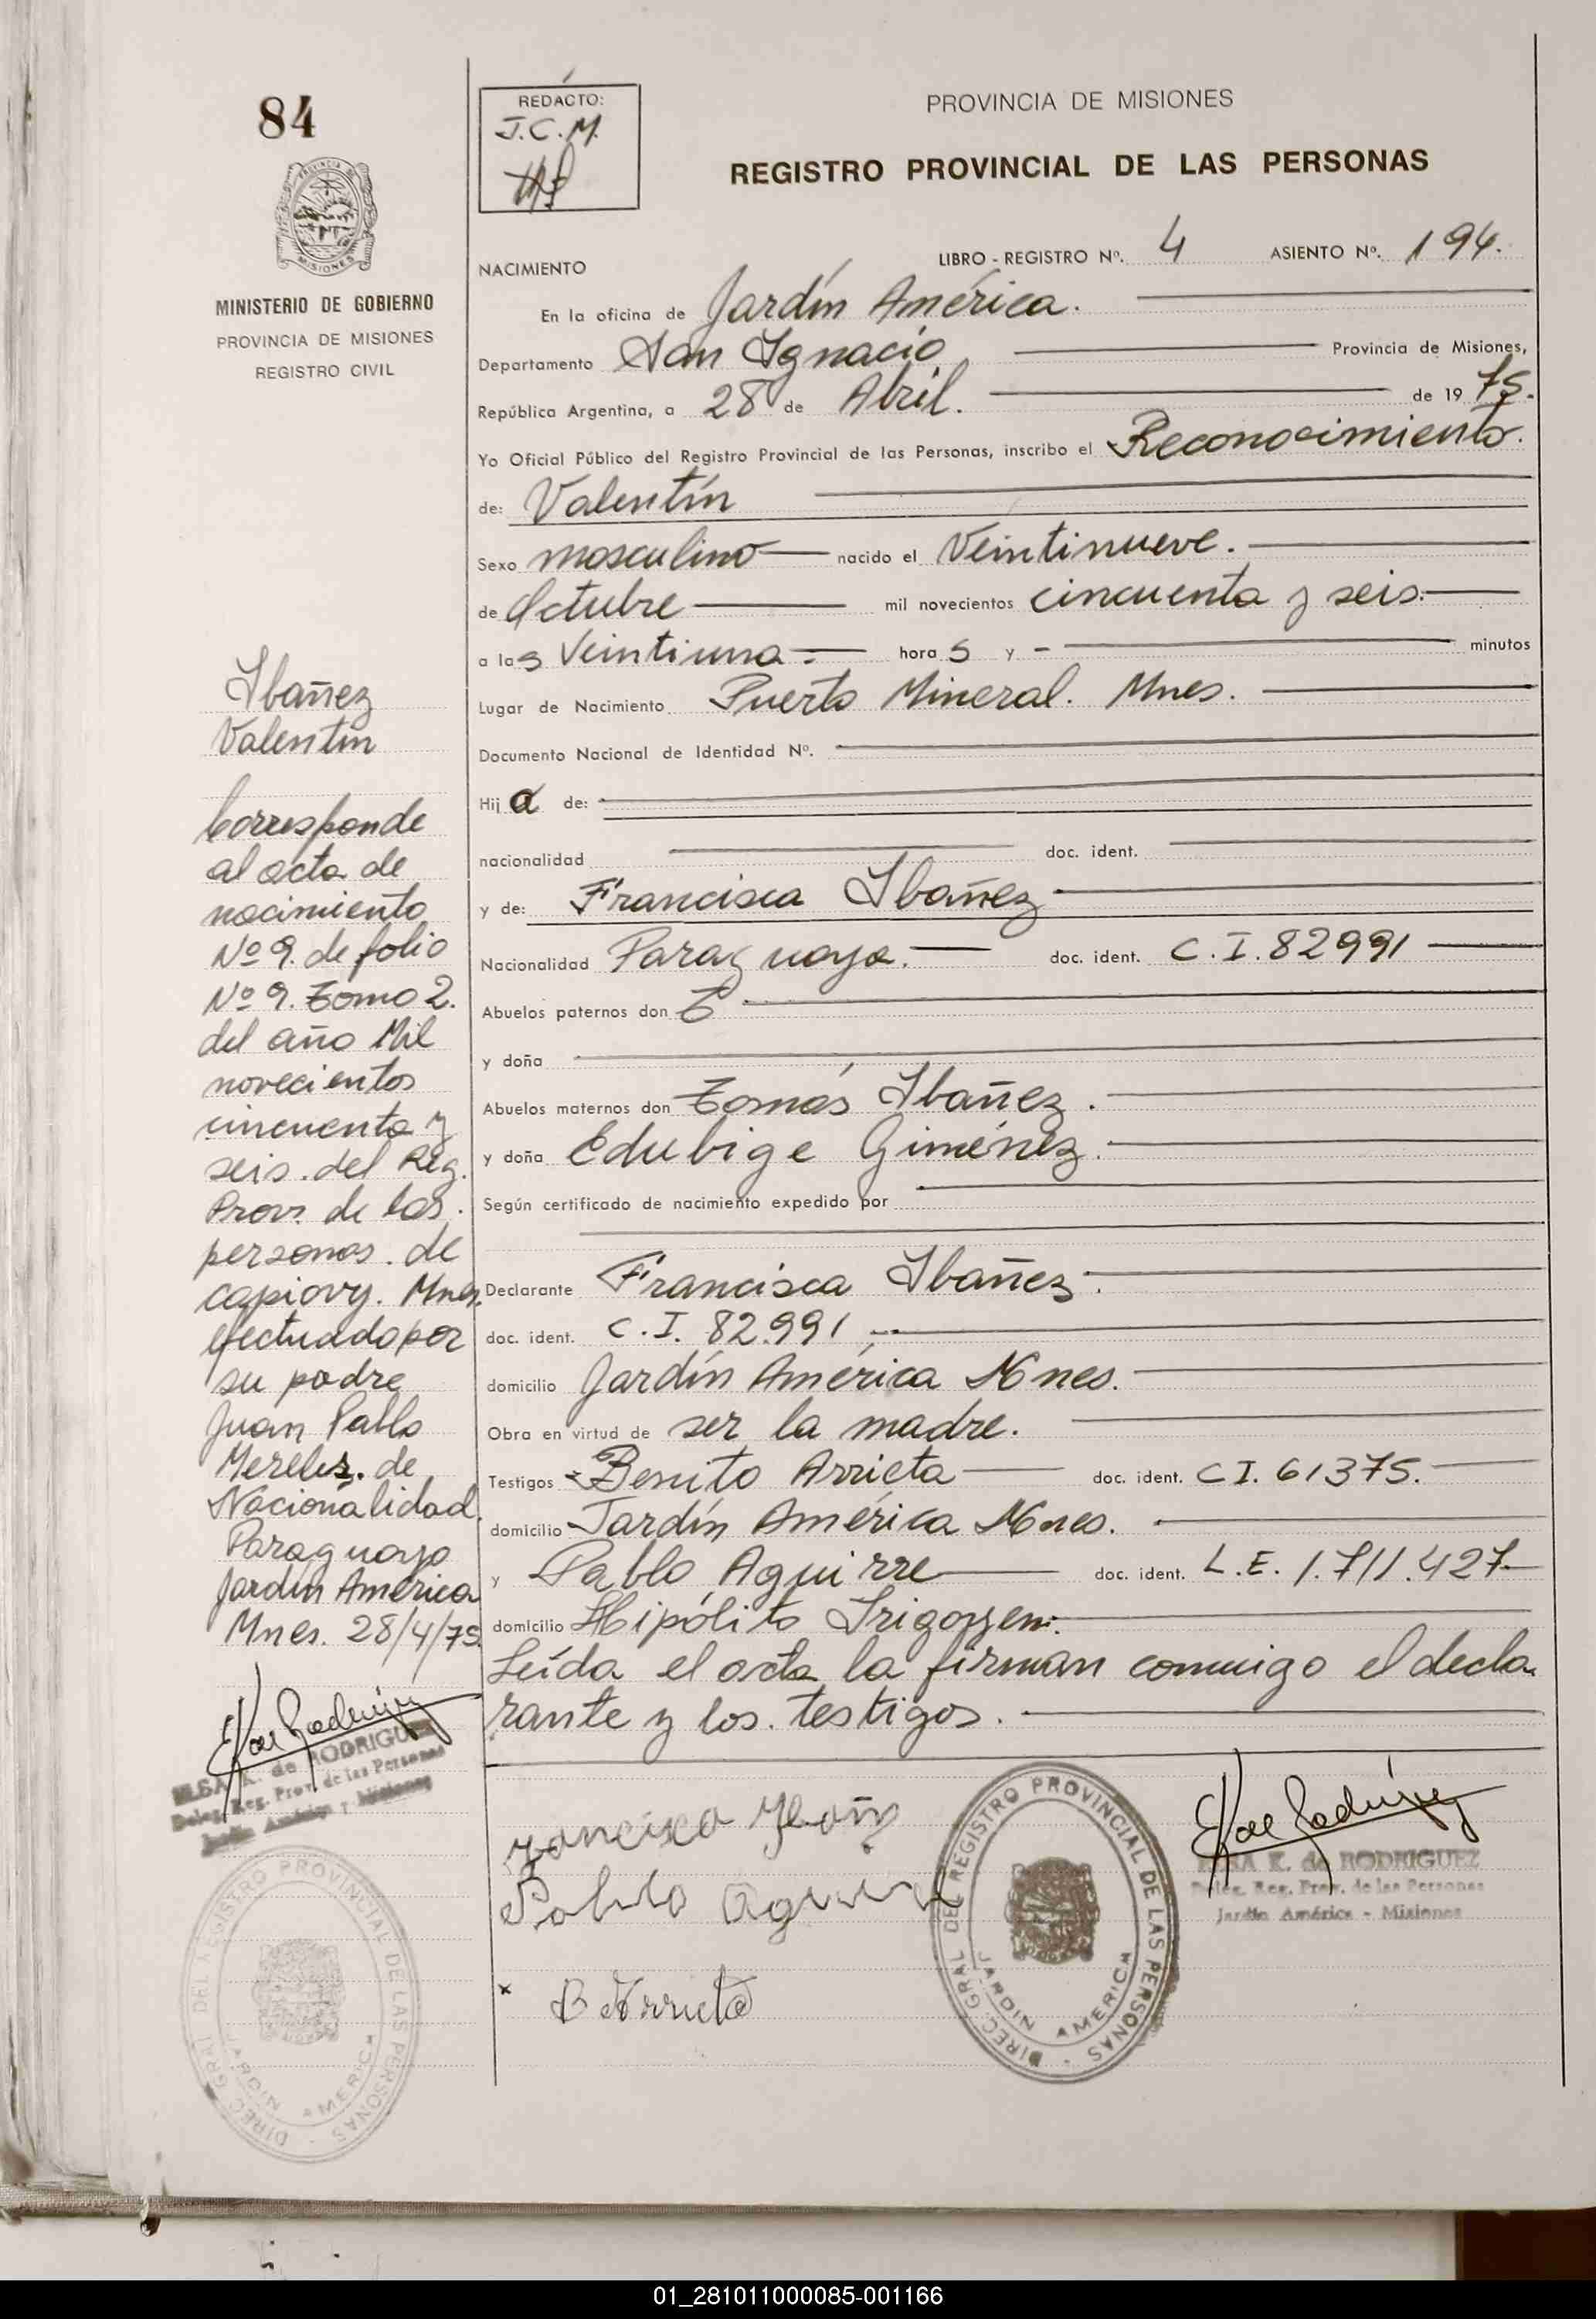 84
MISIONES
MINISTERIO DE GOBIERNO
PROVINCIA DE MISIONES
REGISTRO CIVIL
Ibañez
Valentín
Corresponde
al acta de
nacimiento
Nº 9. de folio
Nº 9. Tomo 2.
del año Mil
novecientos
cincuenta y
seis. del Reg.
Prov. de las.
personas. de
capiovy. Mnes.
efectuado por
su padre
Juan Pablo
Mereles. de
Nacionalidad.
Paraguayo
Jardín América
Mnes. 28/4/75.
ELSA K. de RODRIGUEZ
Deleg. Reg. Prov. de las Personas
Jardín América - Misiones
DIREC. GRAL. DEL REGISTRO PROVINCIAL DE LAS PERSONAS
JARDIN AMERICA
REDACTO:
J.C.M.
PROVINCIA DE MISIONES
REGISTRO PROVINCIAL DE LAS PERSONAS
NACIMIENTO LIBRO - REGISTRO Nº. 4 ASIENTO Nº. 194.
En la oficina de Jardín América.
Departamento San Ignacio Provincia de Misiones,
República Argentina, a 28 de Abril. de 1975.
Yo Oficial Público del Registro Provincial de las Personas, inscribo el Reconocimiento.
de: Valentín
Sexo masculino nacido el Veintinueve.
de Octubre mil novecientos cincuenta y seis.
a las Veintiuna. horas y - minutos
Lugar de Nacimiento Puerto Mineral. Mnes.
Documento Nacional de Identidad Nº.
Hija de:
nacionalidad doc. ident.
y de: Francisca Ibañez
Nacionalidad Paraguaya. doc. ident. C.I. 82991
Abuelos paternos don
y doña
Abuelos maternos don Tomás Ibañez.
y doña Edubige Giménez.
Según certificado de nacimiento expedido por
Declarante Francisca Ibañez.
doc. ident. C.I. 82.991
domicilio Jardín América Mnes.
Obra en virtud de ser la madre.
Testigos Benito Arrieta doc. ident. CI. 61375.
domicilio Jardín América Mnes.
y Pablo Aguirre doc. ident. L.E. 1.711.427
domicilio Hipólito Irigoyen.
Leída el acta la firman conmigo el decla
rante y los testigos.
Francisca
Pablo
x B Arrieta
DIREC. GRAL. DEL REGISTRO PROVINCIAL DE LAS PERSONAS
JARDIN AMERICA
ELSA K. de RODRIGUEZ
Deleg. Reg. Prov. de las Personas
Jardín América - Misiones
01_281011000085-001166